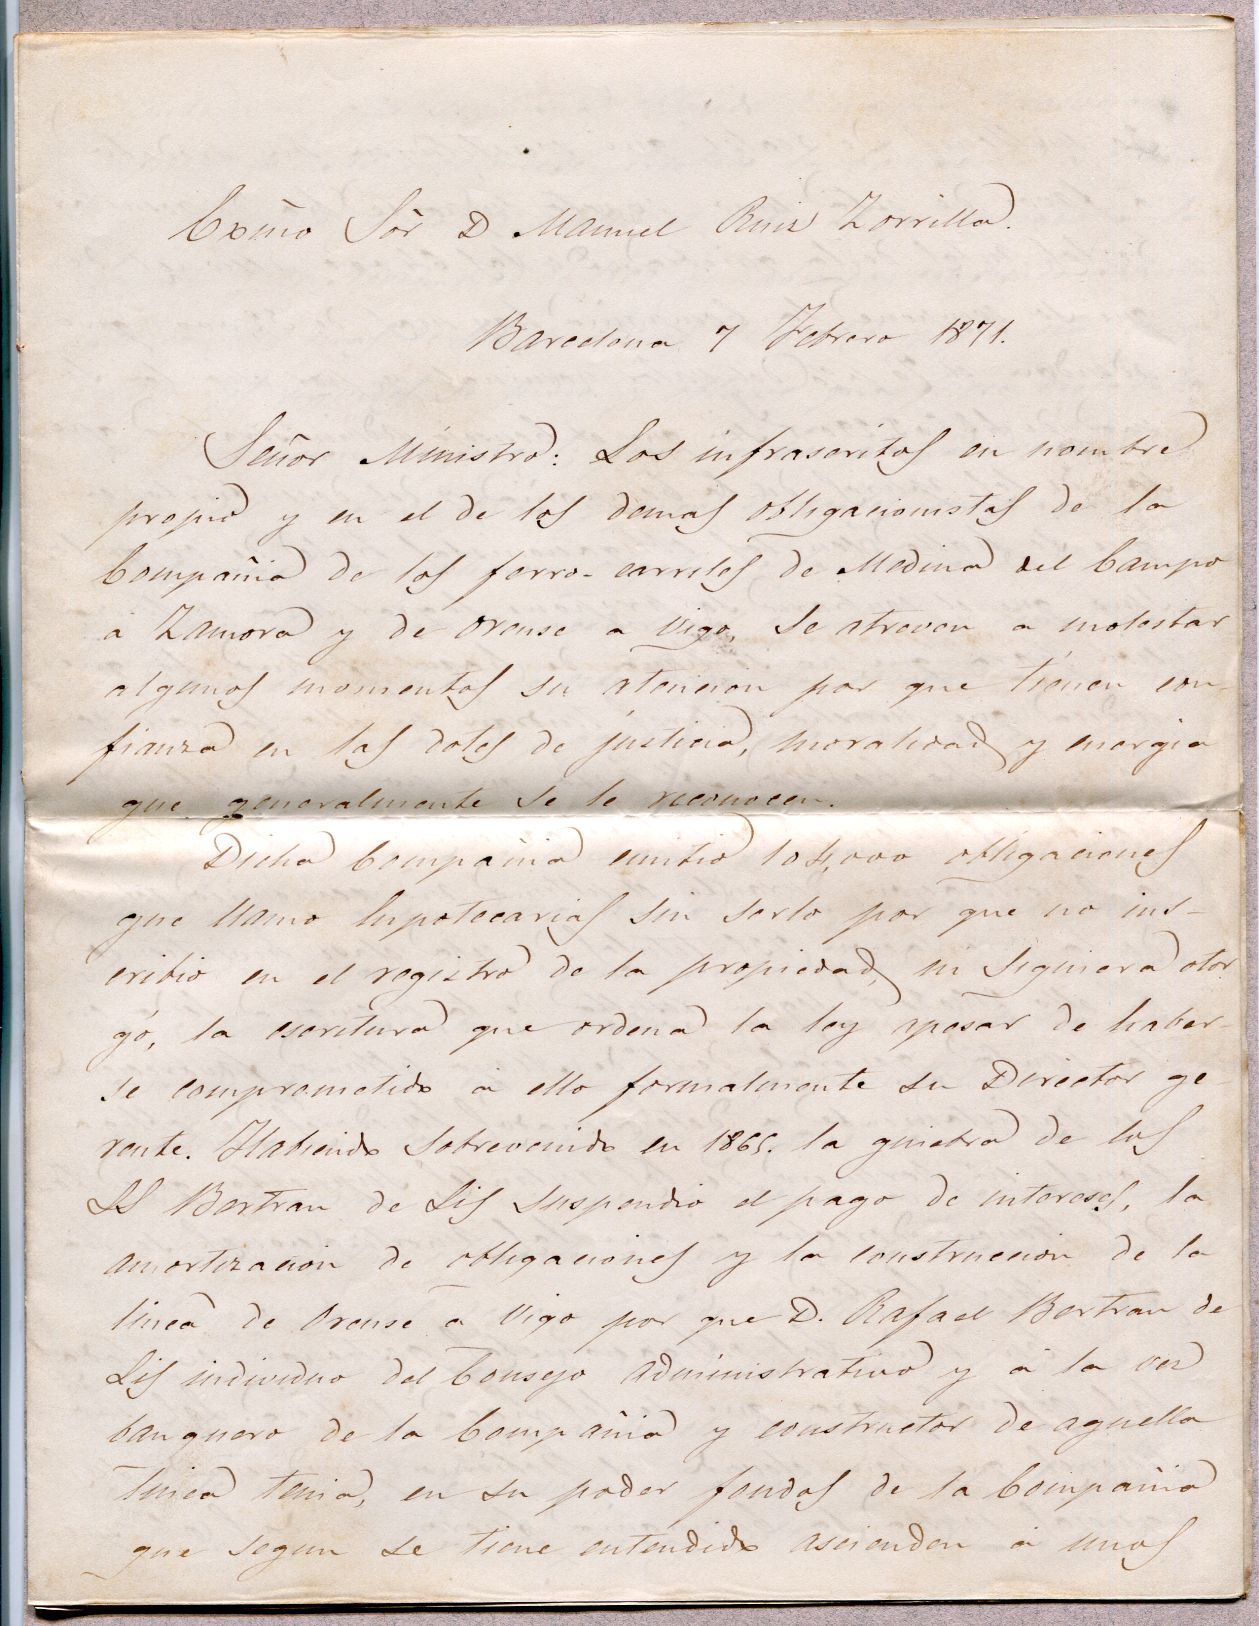 Exmo Sôr D Manuel Ruiz Zorrilla.
Barcelona 7 Febrero 1871.
Señor Ministro: Los infrascritos en nombre
propio y en el de los demas obligacionistas de la
Compañia de los ferro-carriles de Medina del Campo
á Zamora y de Orense a Vigo, se atreven a molestar
algunos momentos su atencion por que tienen con-
fianza en las dotes de justicia, moralidad y energia
que generalmente se le reconocen.
Dicha Compañia emitió 104,000 obligaciones
que llamo hipotecarias sin serlo por que no ins-
cribio en el registro de la propiedad, ni siquiera otor
gó, la escritura que ordena la ley apesar de haber-
se comprometido á ello formalmente su Director ge-
rente. Habiendo sobrevenido en 1865. la quiebra de los
SS Bertran de Lis suspendió el pago de intereses, la
amortizacion de obligaciones y la construccion de la
linea de Orense á Vigo por que D. Rafael Bertran de
Lis individuo del Consejo administrativo y á la vez
banquero de la Compañia y constructor de aquella
linea tenia, en su poder fondos de la Compañia
que segun se tiene entendido ascienden á unos